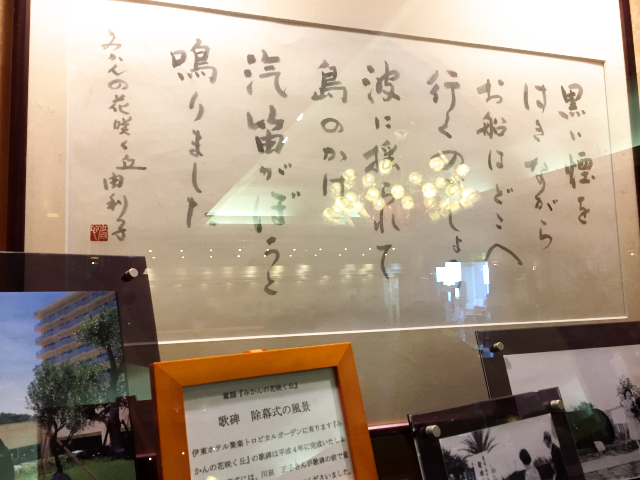 黒い煙を
はきながら
お船はどこへ
行くのでしょ
波に揺られて
島のかげ
汽笛がぼうと
鳴りました
みかんの花咲く丘 由利子
童謡『みかんの花咲く丘』
歌碑 除幕式の風景
伊東ホテル聚楽トロピカルガーデンに有ります『み
かんの花咲く丘』の歌碑は平成4年に完成いたしま
には、川田 正子さんが歌碑の前で童
ださいました